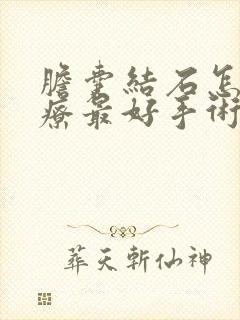 膽囊結石怎
療最好手術
葬天斬仙神